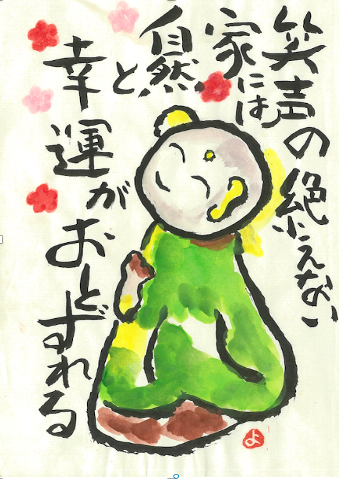 笑声の絶えない
家には
自然と
幸運がおとずれる
よ